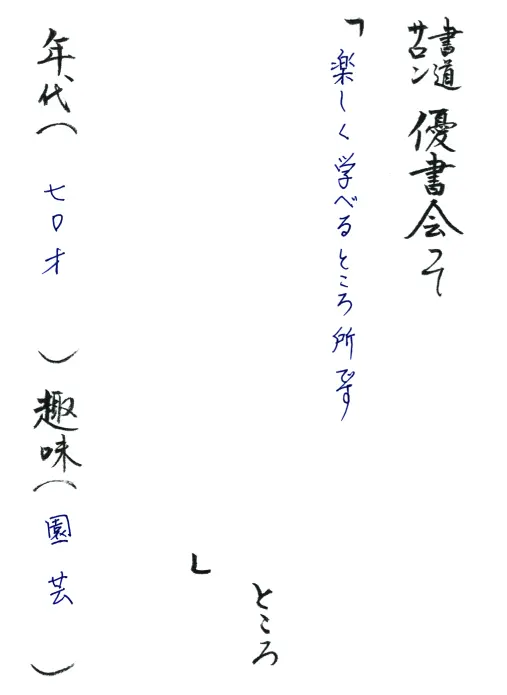 書道サロン 優書会って
「楽しく学べるところ所です
」ところ
年代（七〇才）趣味（園芸）